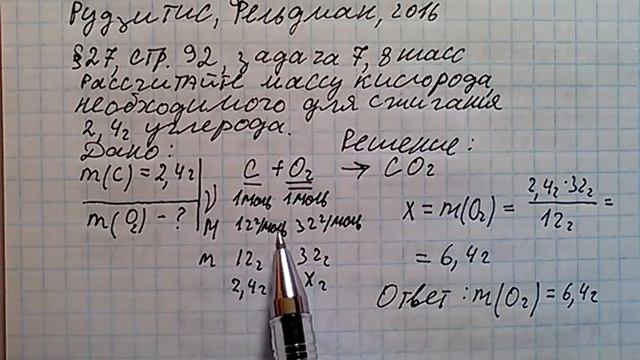 Рудзитис, Фельдман, 2016
§27, стр. 92, задача 7, 8 класс
Рассчитайте массу кислорода,
необходимого для сжигания
2,4г углерода.
Дано: Решение:
m(C) = 2,4г
m(O₂) - ?
C + O₂ → CO₂
ν 1моль 1моль
M 12г/моль 32г/моль
m 12г 32г
2,4г Xг
X = m(O₂) = 2,4г · 32г / 12г =
= 6,4г
Ответ: m(O₂) = 6,4г